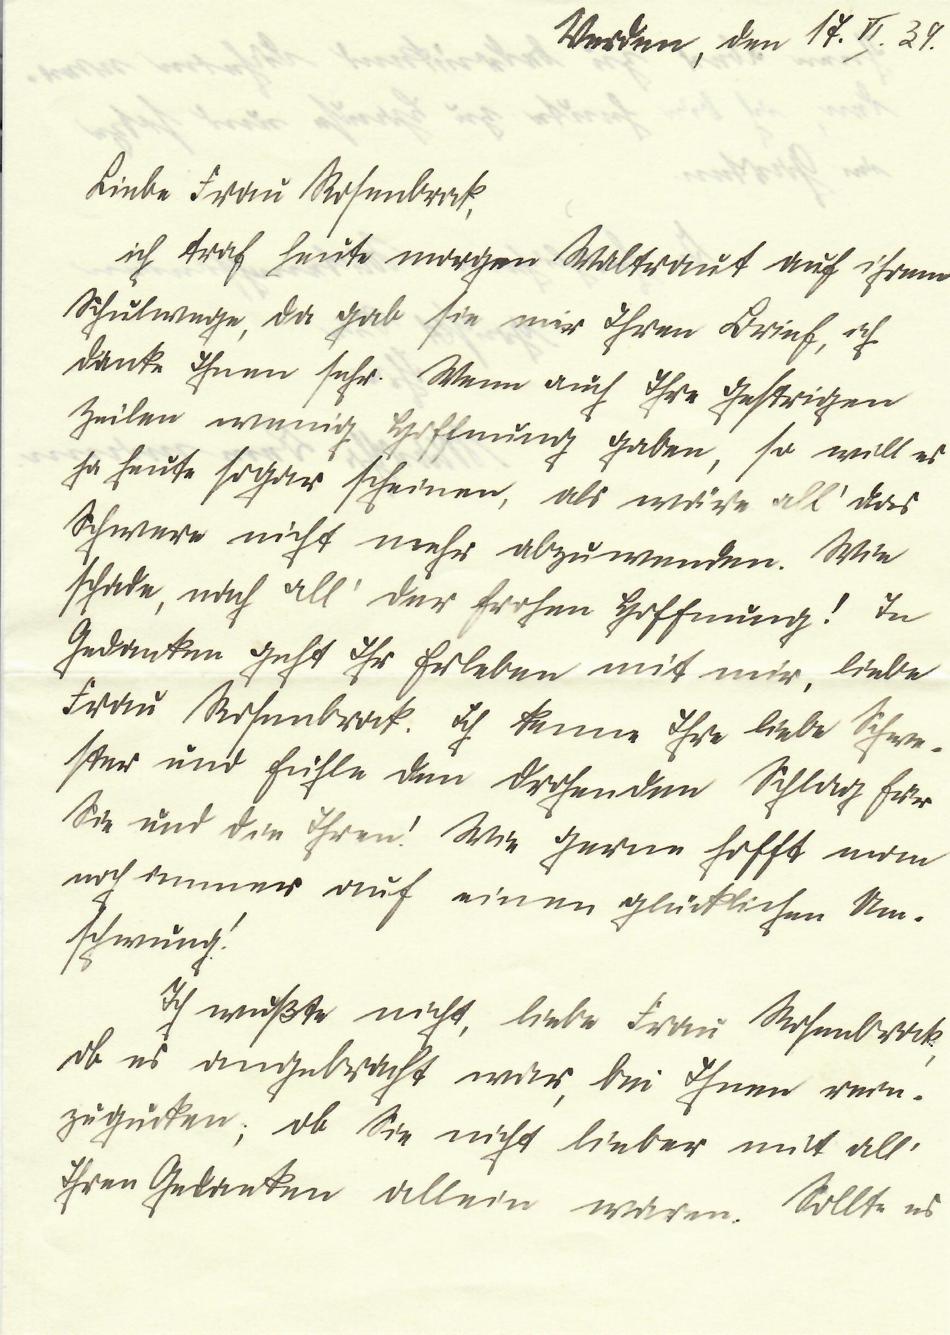 Verden, den 17. VI. 39.
Liebe Frau Rosenbrock,
ich traf heute morgen Waltraut auf ihrem
Schulwege, da gab sie mir Ihren Brief, ich
danke Ihnen sehr. Wenn auch Ihre gestrigen
Zeilen wenig Hoffnung gaben, so will es
ja heute sogar scheinen, als wäre all' das
Schwere nicht mehr abzuwenden. Wie
schade, nach all' der frohen Hoffnung! In
Gedanken geht Ihr Erleben mit mir, liebe
Frau Rosenbrock. Ich kenne Ihre liebe Schwe-
ster und fühle den drohenden Schlag für
Sie und die Ihren! Wie gerne hofft man
noch immer auf einen glücklichen Um-
schwung!
Ich wußte nicht, liebe Frau Rosenbrock,
ob es angebracht war, bei Ihnen rein-
zugucken; ob Sie nicht lieber mit all'
Ihren Gedanken allein waren. Sollte es